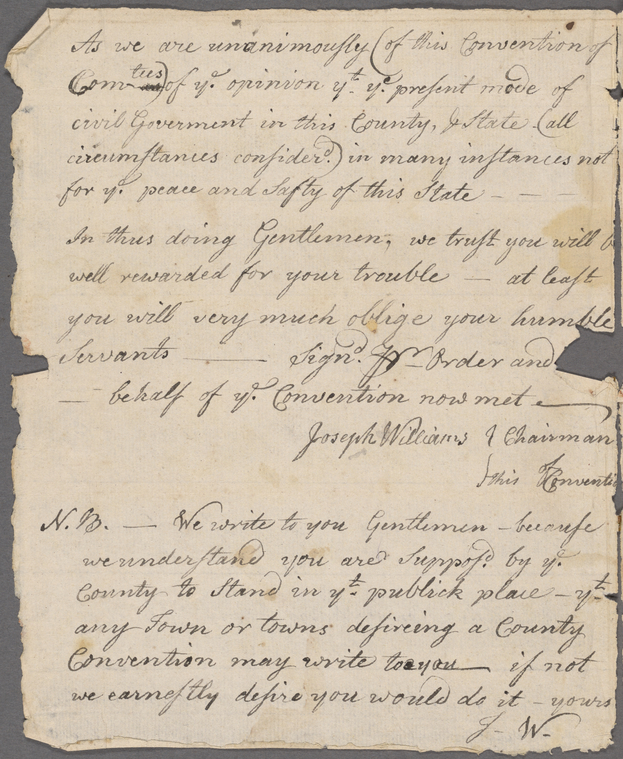 As we are unanimously (of this Convention of
Comtees) of ye opinion yt ye present mode of
civil Goverment in this County, & State (all
circumstances considerd) in many instances not
for ye peace and Safty of this State - - -
In thus doing Gentlemen, we trust you will b
well rewarded for your trouble — at least
you will very much oblige your humble
Servants —— Signd. Pr Order and
— behalf of ye Convention now met —
Joseph Williams } Chairman
this Conventi
N. B. — We write to you Gentlemen - because
we understand you are Supposd by ye
County to Stand in yt publick place - yt
any Town or towns desireing a County
Convention may write to you — if not
we earnestly desire you would do it - yours
J - W -